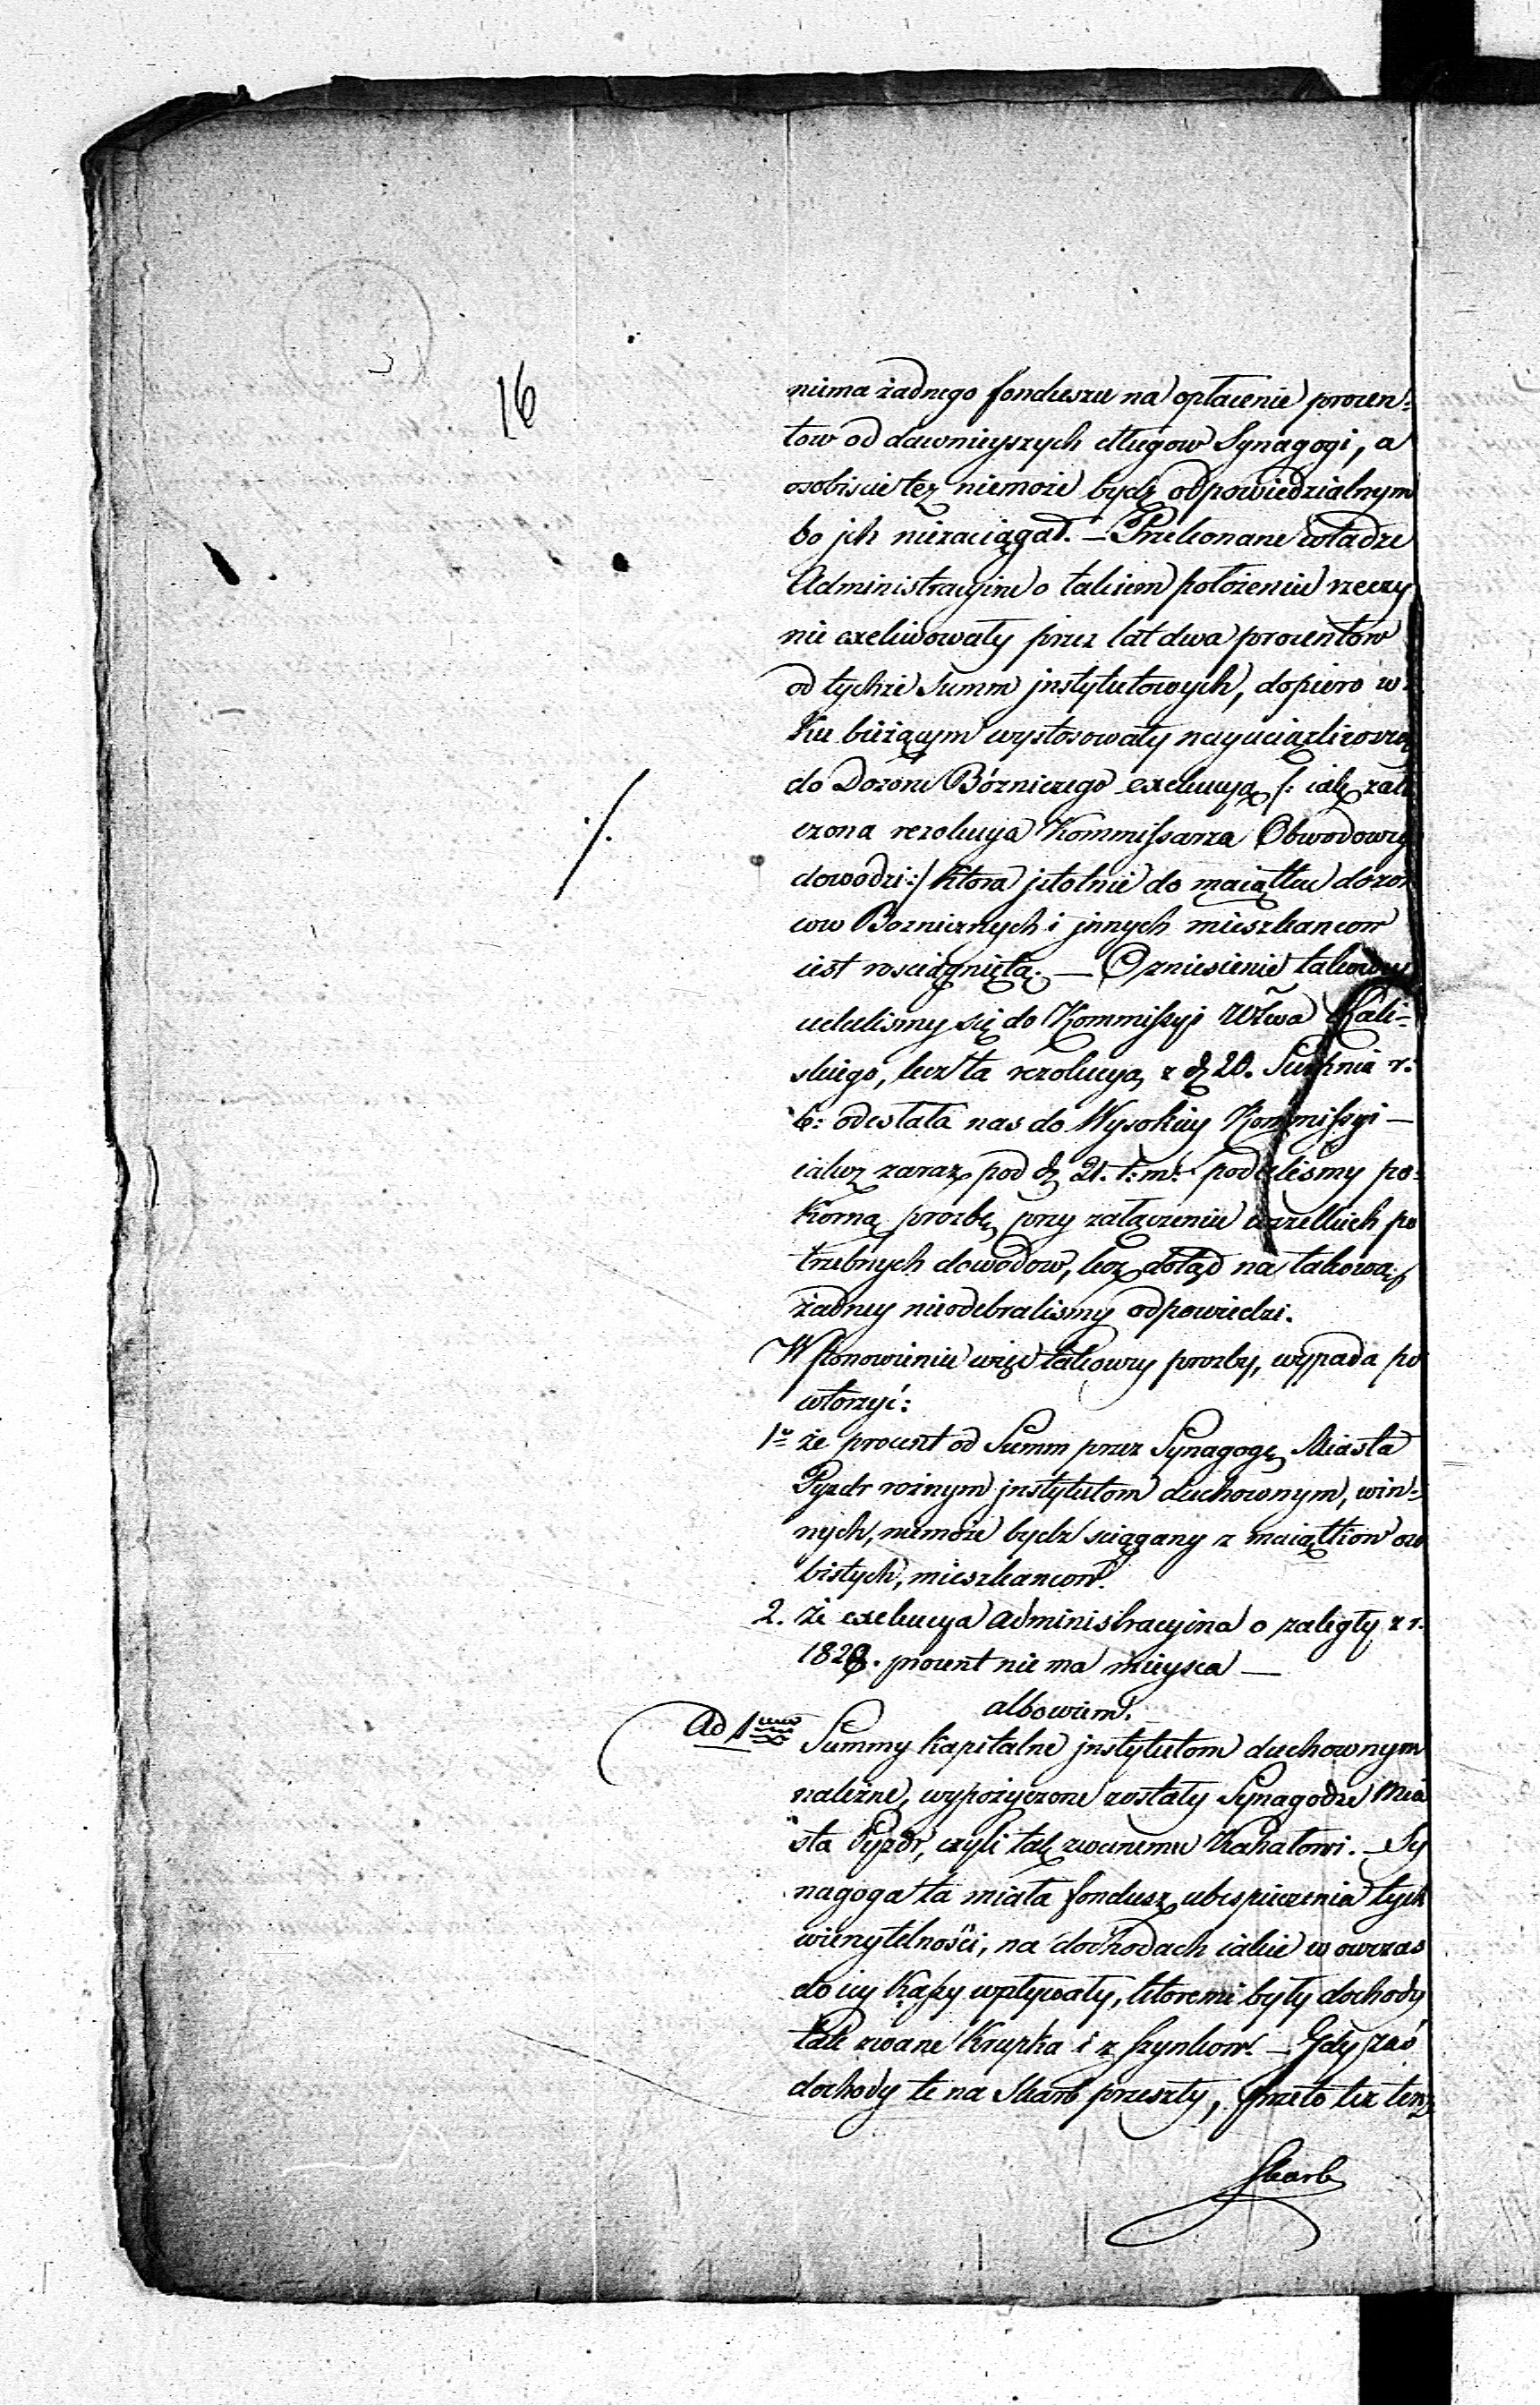 16
niema żadnego fonduszu na opłacenie procen-
tow od dawnieyszych długow Synagogi, a
osobiscie też niemoże bydź odpowiedzialnym
bo jch niezaciągał. — Przekonane władze
Administracyine o takiem położeniu rzeczy
nie exekwowały przez lat dwa procentow
od tychże summ jnstytutowych, dopiero w
ku bieżącym wystosowały nayuciążliwszą
do Dozoru Bóźniczego exekucyą /: iak załą
czona rezolucya Kommissarza Obwodowego
dowodzi :/ ktora jstotnie do maiątku dozor
cow Boznicznych i jnnych mieszkancow
iest rosciągnięta. — O zniesienie takowey
udaliśmy się do Kommissyi Wtwa Kali-
skiego, lecz ta rezolucyą z d 20. Sierpnia r.
b: odesłała nas do Wysokiey Kommissyi —
iakoż zaraz pod d 21. t: m: podaliśmy po-
korną prozbę przy załączeniu wszelkich po
trzebnych dowodow, lecz dotąd na takową
żadney nieodebraliśmy odpowiedzi.
W ponowieniu więc takowey prozby, wypada po
wtorzyć:
1o że procent od Summ przez Synagogę Miasta
Pyzdr rożnym jnstytutom duchownym, win-
nych, niemoże bydź sciągany z maiątkow oso
bistych, mieszkancow.
2. że exekucya administracyina o zaległy z r.
1828. procent nie ma mieysca —
albowiem.
Ad 1mo Summy kapitalne jnstytutom duchownym
należne, wypożyczone zostały Synagodze Mia
sta Pyzdr, czyli tak zwanemu Kahałowi. — Sy
nagoga ta miała fundusz ubespieczenia tych
wierzytelności, na dochodach iakie w owczas
do iey kassy wpływały, ktoremi były dochody
tak zwane Krupka i z szynkow. — Gdy zaś
dochody te na Skarb przeszły, przeto też tenże
Skarb